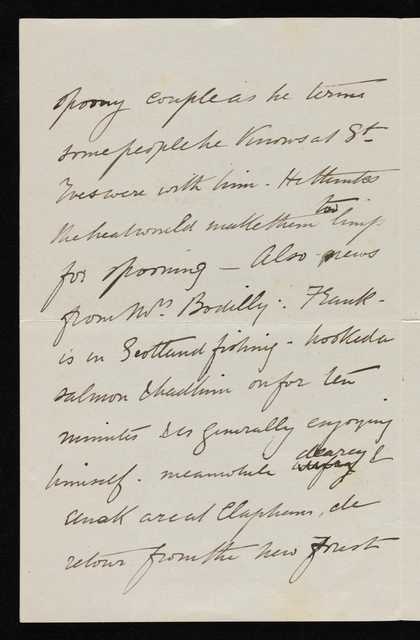 spoony couple as he terms
some people he knows at St
Ives were with him. He thinks
the heat would make them too limp
for spooning — Also news
from Mrs Bodilly: Frank
is in Scotland fishing - hooked a
salmon & had him on for ten
minutes & is generally enjoying
himself. meanwhile dearey &
are at Claphams, de
retour from the New Forest